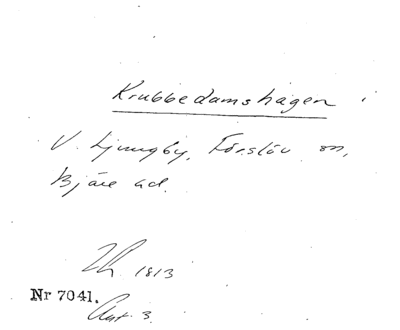 Krubbedamshagen
V. Ljungby, Förslöv sn,
Bjäre hd.
1813
Nr 7041.
Akt. 3.